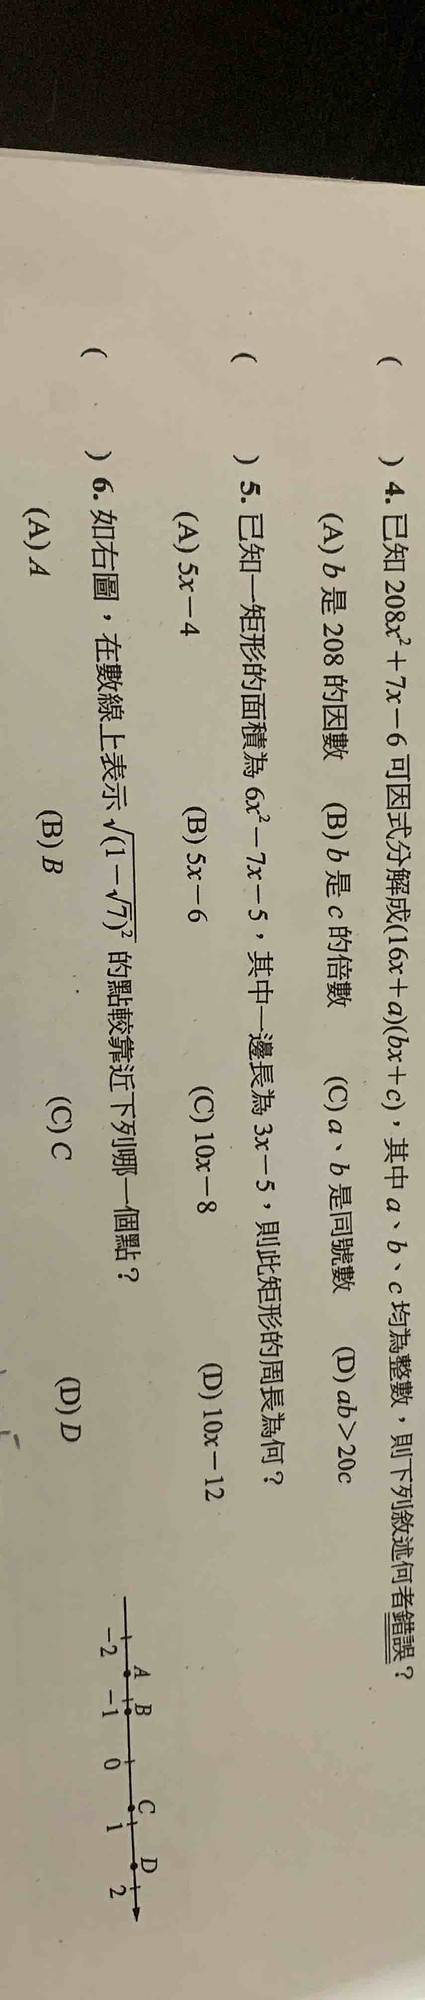 (　　) 4. 已知 208x²＋7x－6 可因式分解成(16x＋a)(bx＋c)，其中 a、b、c 均為整數，則下列敘述何者錯誤？
(A) b 是 208 的因數　(B) b 是 c 的倍數　(C) a、b 是同號數　(D) ab＞20c
(　　) 5. 已知一矩形的面積為 6x²－7x－5，其中一邊長為 3x－5，則此矩形的周長為何？
(A) 5x－4　(B) 5x－6　(C) 10x－8　(D) 10x－12
(　　) 6. 如右圖，在數線上表示 √(1－√7)² 的點較靠近下列哪一個點？
(A) A　(B) B　(C) C　(D) D
A B C D
－2 －1 0 1 2